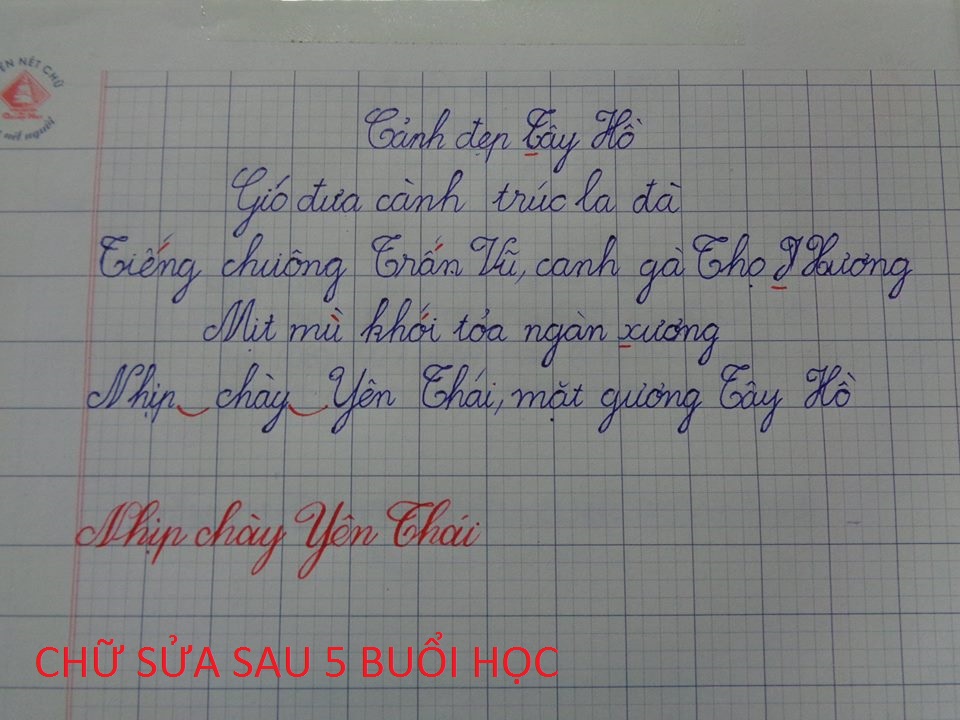 NÉT CHỮ
nết người
Cảnh đẹp Tây Hồ
Gió đưa cành trúc la đà
Tiếng chuông Trấn Vũ, canh gà Thọ Xương
Mịt mù khói tỏa ngàn xương
Nhịp chày Yên Thái, mặt gương Tây Hồ
Nhịp chày Yên Thái
CHỮ SỬA SAU 5 BUỔI HỌC